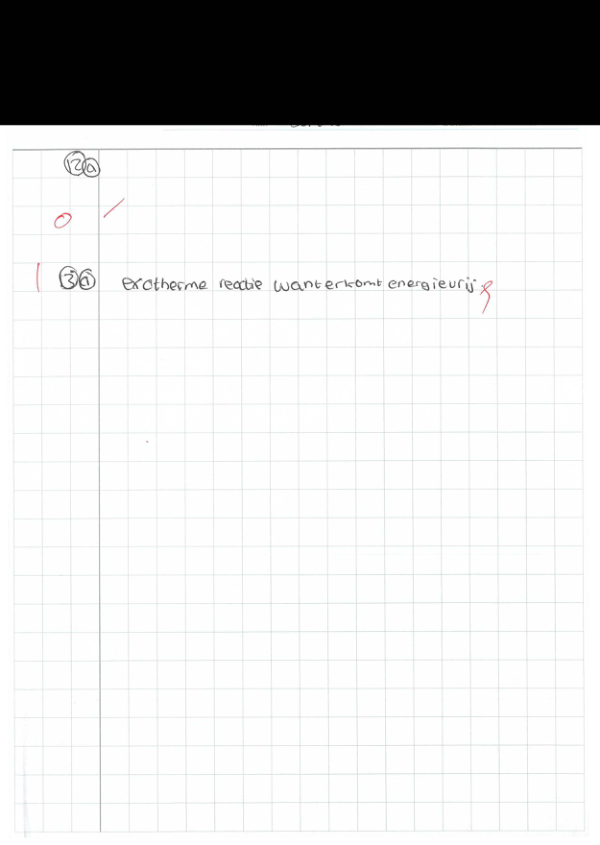 12a
0 /
| 3a exotherme reactie want er komt energie vrij